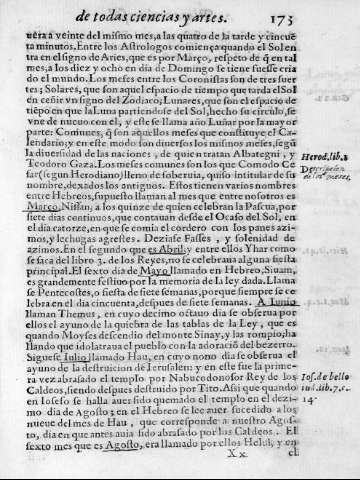 de todas ciencias y artes. 173
uera a veinte del mismo mes, a las quatro de la tarde y cincue
ta minutos. Entre los Astrologos comiença quando el Sol en
tra en el signo de Aries, que es por Março, respeto de q̃ en tal
mes, a los diez y ocho en dia de Domingo se tiene fuesse cria
do el mundo. Los meses entre los Coronistas son de tres suer
tes; Solares, que son aquel espacio de tiempo que tarda el Sol
en ceñir vn signo del Zodiaco; Lunares, que son el espacio de
tiẽpo en que la Luna partiendose del Sol, hecho su circulo, se
vne de nueuo con el, y este se llama año Lunar por la mayor
parte: Comunes, q̃ son aquellos meses que constituye el Ca-
lendario; y en este modo son diuersos los mismos meses, segũ
la diuersidad de las naciones, de quien tratan Albategni, y
Teodoro Gaza. Los meses comunes son los que Comodo Ce
sar (segun Herodiano) lleno de soberuia, quiso intitular de su
nombre, dexados los antiguos. Estos tienen varios nombres
entre Hebreos, supuesto llaman al mes que entre nosotros es
Março, Nissan; a los quinze de quien celebran la Pascua, por
siete dias continuos, que contauan desde el Ocaso del Sol, en
el dia catorze, en que se comia el cordero con los panes azi-
mos, y lechugas agrestes. Deziase Fasses, y solenidad de
azimos. En el segundo que es Abril, y entre ellos Yhar como
se saca del libro 3. de los Reyes, no se celebraua alguna fiesta
principal. El sexto dia de Mayo llamado en Hebreo, Siuam,
es grandemente festiuo por la memoria de la ley dada. Llama
se Pentecostes, o fiesta de siete semanas, porque siempre se ce
lebra en el dia cincuenta, despues de siete semanas. A Iunio
llaman Themus, en cuyo decimo octauo dia se obserua por
ellos el ayuno de la quiebra de las tablas de la Ley, que es
quando Moyses descendio del monte Sinay, y las rompio, ha
llando que idolatraua el pueblo con la adoraciõ del bezerro.
Siguese Iulio llamado Hau, en cuyo nono dia se obserua el
ayuno de la destruicion de Ierusalem: y en este fue la prime-
ra vez abrasado el templo por Nabucodonosor Rey de los
Caldeos, siendo despues destruido por Tito. Assi que quando
en Iosefo se halla auer sido quemado el templo en el dezi-
mo dia de Agosto; en el Hebreo se lee auer sucedido a los
nueue del mes de Hau, que corresponde a nuestro Agos-
to, dia en que antes auia sido abrasado por los Caldeos. El
sexto mes que es Agosto, era llamado por ellos Helul, y en
Xx. el
Herod. lib. 1
Descripcion
de los meses.
Ios. de bello
iud. lib. 7. c.
14